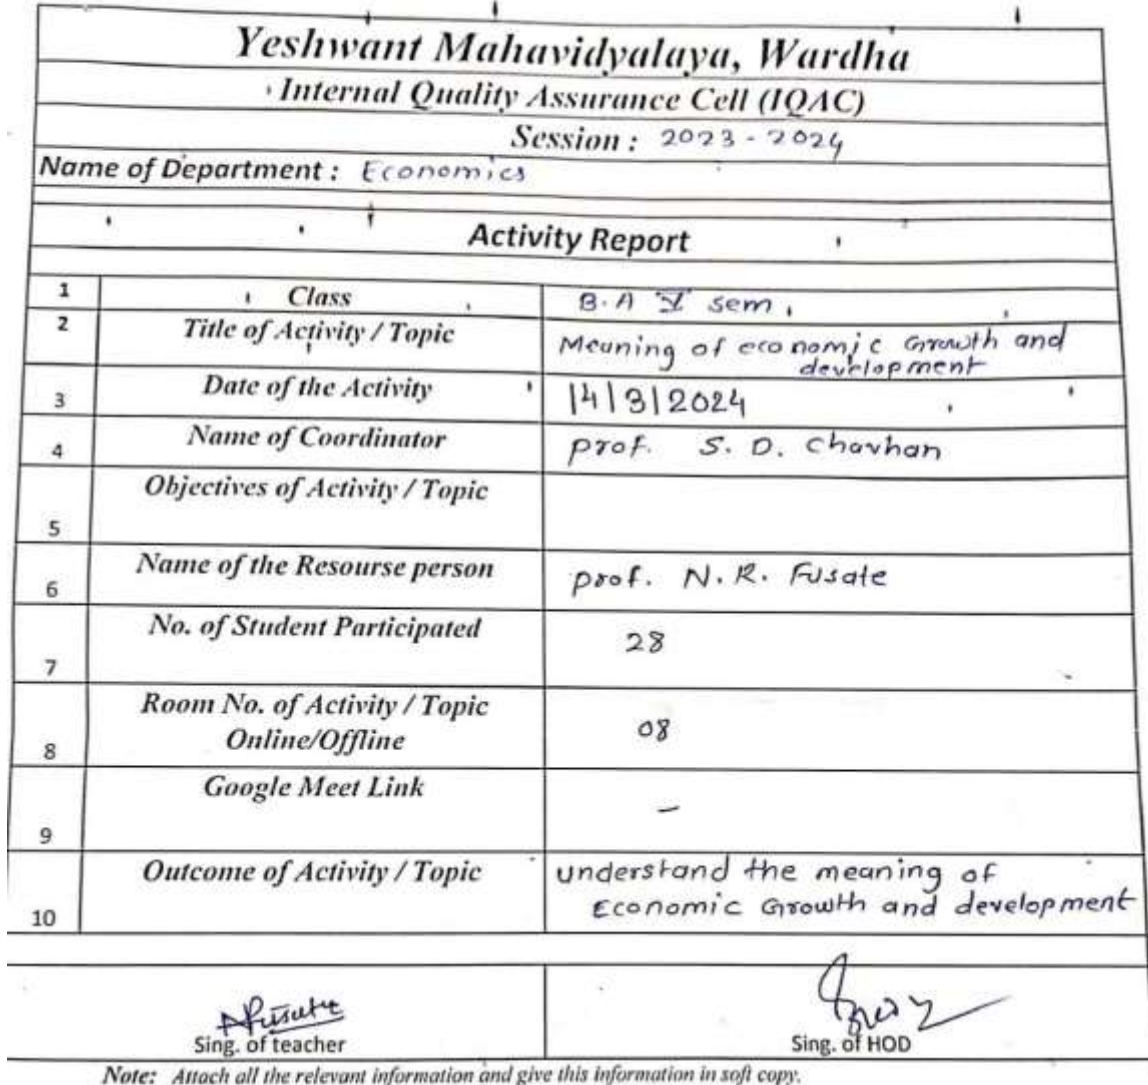 Yeshwant Mahavidyalaya, Wardha
Internal Quality Assurance Cell (IQAC)
Session : 2023-2024
Name of Department : Economics
Activity Report
1 Class B.A V sem.
2 Title of Activity / Topic Meaning of economic Growth and development
3 Date of the Activity 14|3|2024
4 Name of Coordinator prof. S. D. Chavhan
5 Objectives of Activity / Topic
6 Name of the Resourse person prof. N. R. Fusate
7 No. of Student Participated 28
8 Room No. of Activity / Topic Online/Offline 08
9 Google Meet Link –
10 Outcome of Activity / Topic understand the meaning of Economic Growth and development
Sing. of teacher
Sing. of HOD
Note: Attach all the relevant information and give this information in soft copy.